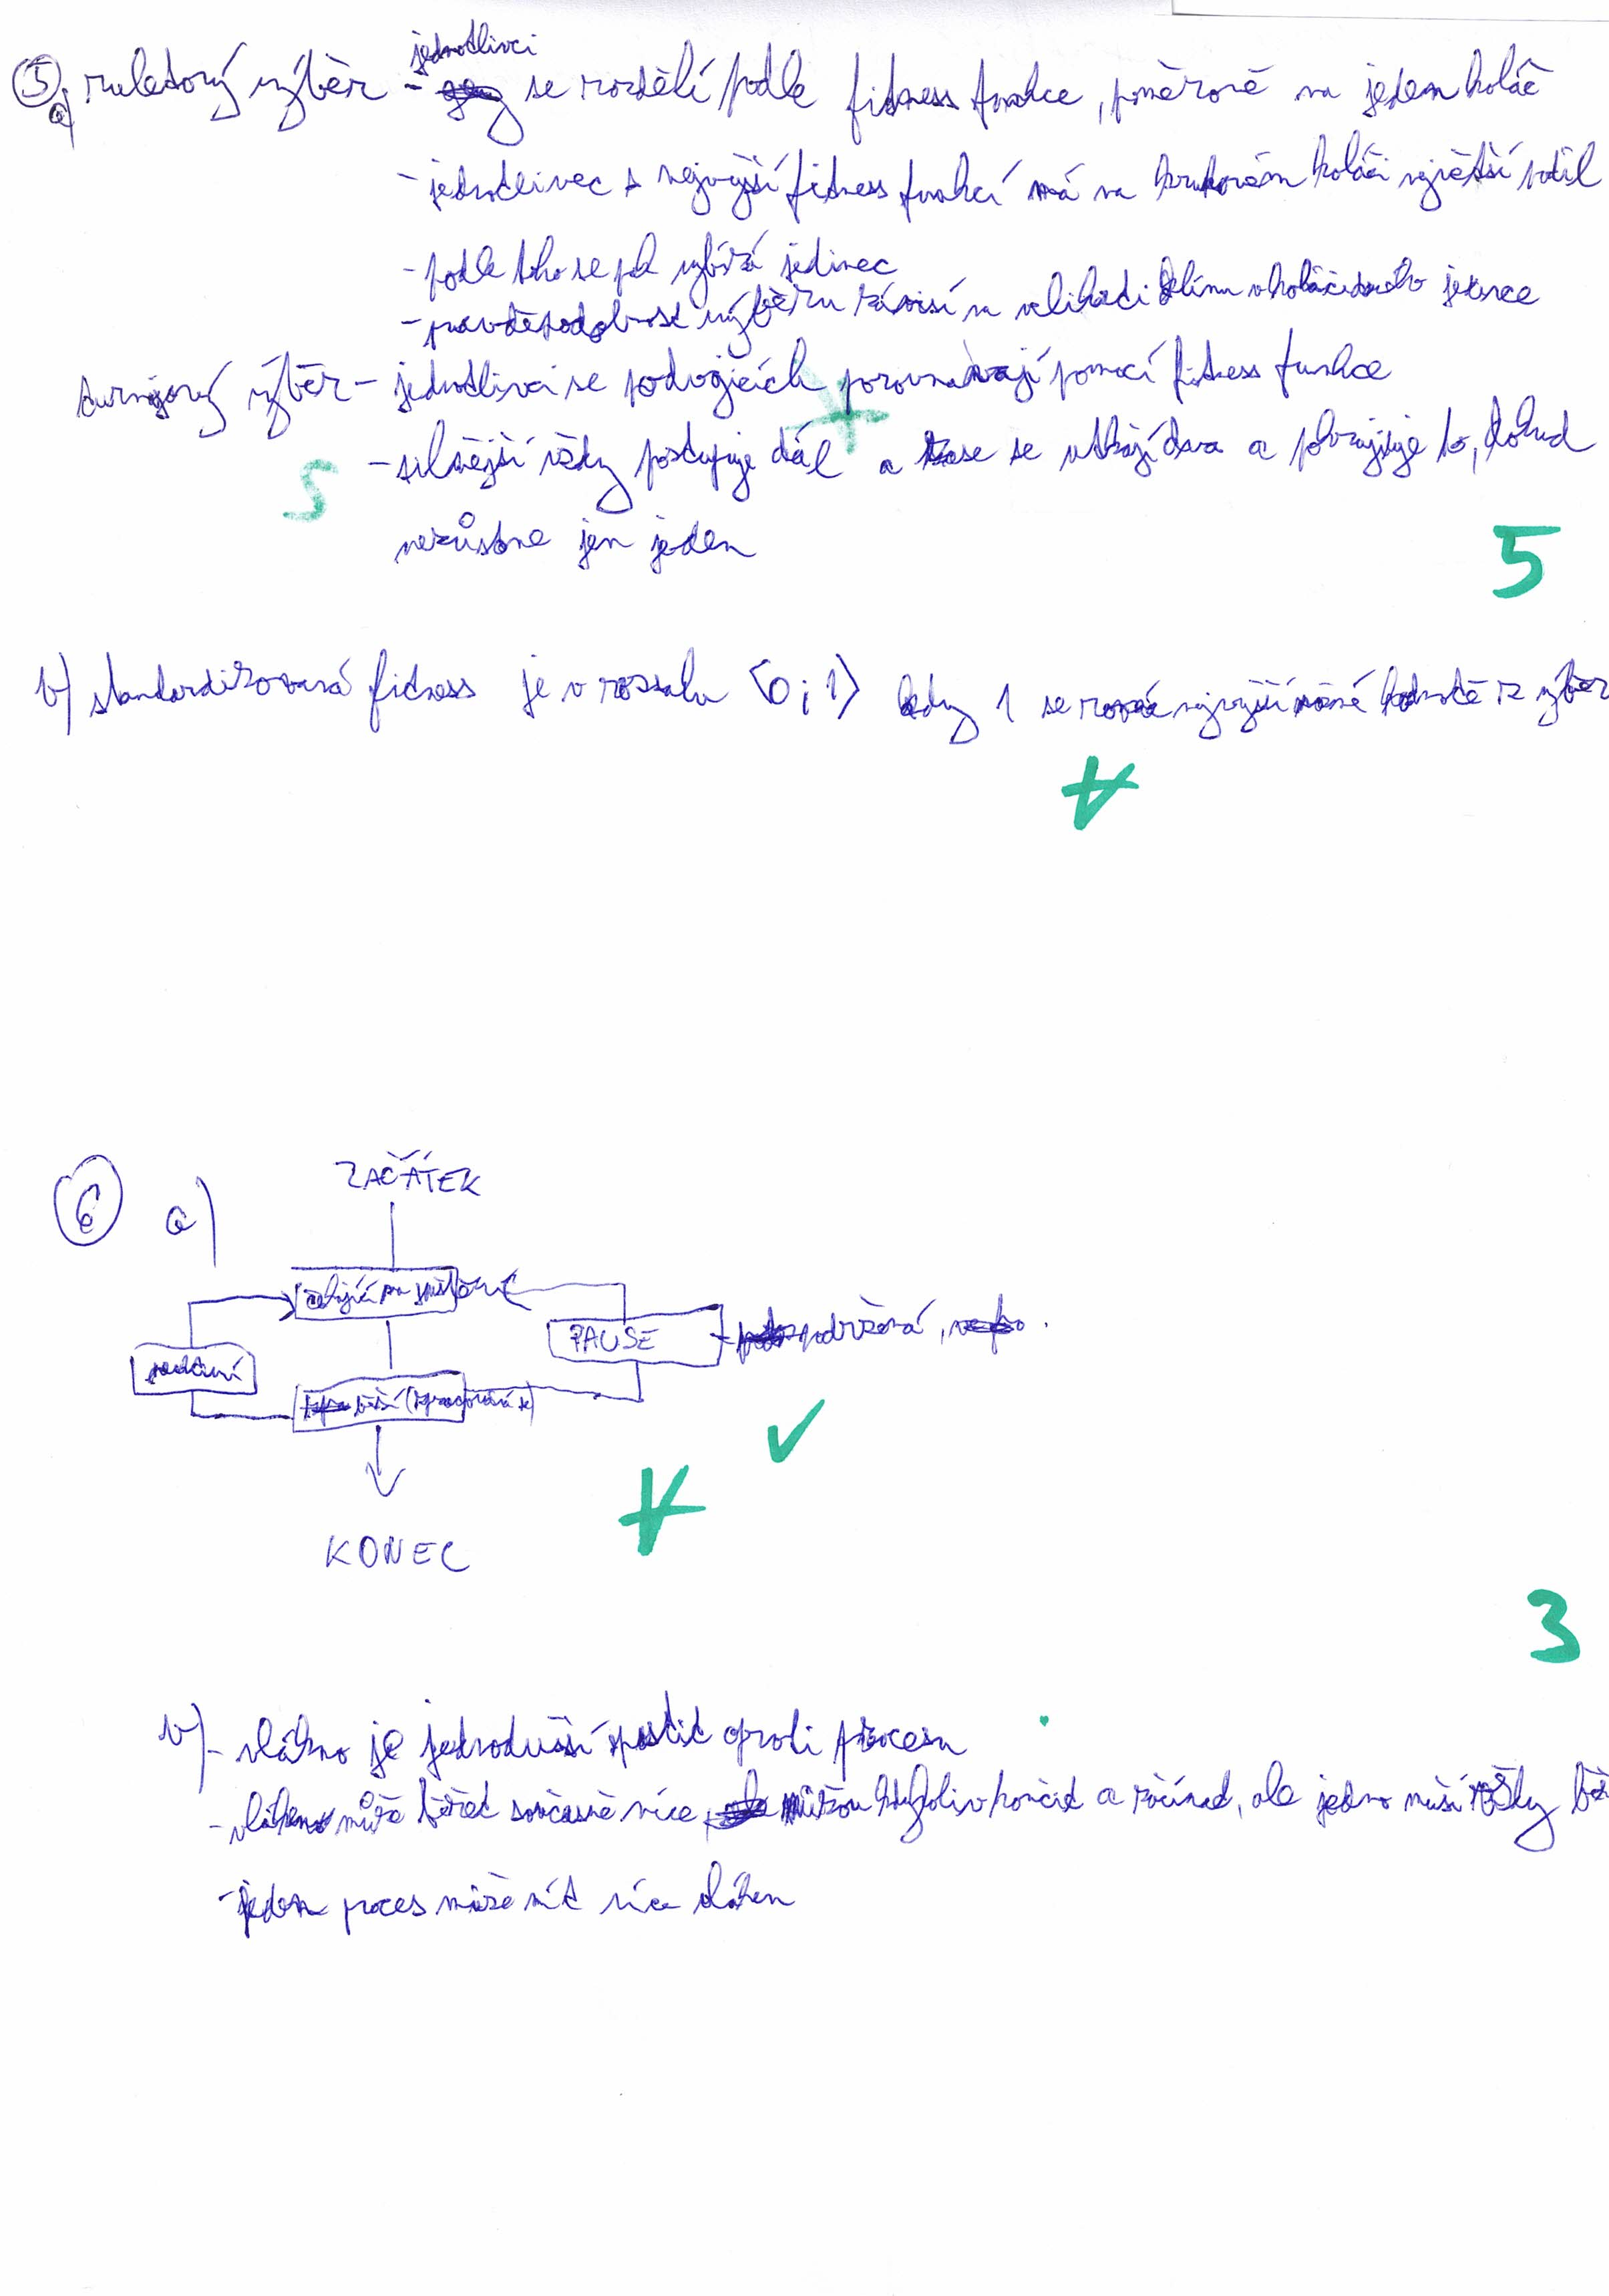 5 a) ruletový výběr - jednotlivci se rozdělí podle fitness funkce, poměrově na jeden koláč
- jednotlivec s nejvyšší fitness funkcí má na kruhovém koláči největší podíl
- podle toho se pak vybírá jedinec
- pravděpodobnost výběru závisí na velikosti dílu v koláči jedince
turnajový výběr - jednotlivci se po dvojicích porovnávají pomocí fitness funkce
- silnější vždy postupuje dál a zase se utkají dva a pokračuje to, dokud
S
nezůstane jen jeden
5
b) standardizovaná fitness je v rozsahu <0;1> kdy 1 se rovná nejvyšší možné hodnotě z výběr
ZAČÁTEK
6 a)
čekající na spuštění
PAUSE - pozdržená,
běží (zpracovává se)
KONEC
3
b) - vlákno je jednodušší spustit oproti procesu
- vláken může běžet současně více, můžou kdykoliv končit a začínat, ale jedno musí vždy bě
- jeden proces může mít více vláken